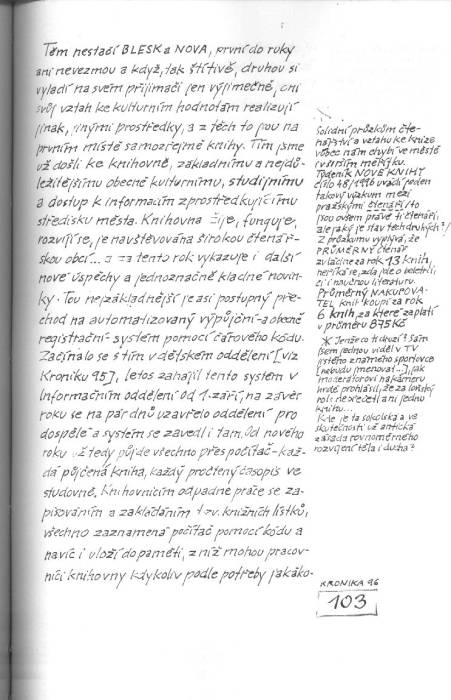 Těm nestačí BLESK a NOVA, první do ruky
ani nevezmou a když, tak štítivě, druhou si
vyladí na svém přijímači jen výjimečně, oni
svůj vztah ke kulturním hodnotám realizují
jinak, jinými prostředky, a z těch to jsou na
prvním místě samozřejmě knihy. Tím jsme
už došli ke knihovně, základnímu a nejdů-
ležitějšímu obecně kulturnímu, studijnímu
a dostup k informacím zprostředkujícímu
středisku města. Knihovna žije, funguje,
rozvíjí se, je navštěvována širokou čtenář-
skou obcí... a za tento rok vykazuje i další
nové úspěchy a jednoznačně kladné novin-
ky. Tou nejzákladnější je asi postupný pře-
chod na automatizovaný výpůjční-a obecně
registrační- systém pomocí čárového kódu.
Začínalo se s tím v dětském oddělení [viz
Kroniku 95], letos zahájil tento systém v
Informačním oddělení od 1. září, na závěr
roku se na pár dnů uzavřelo oddělení pro
dospělé a systém se zavedl i tam. Od nového
roku už tedy půjde všechno přes počítač-kaž-
dá půjčená kniha, každý pročtený časopis ve
studovně. Knihovnicím odpadne práce se za-
pisováním a zakládáním tzv. knižních lístků,
všechno zaznamená počítač pomocí kódu a
navíc i uloží do paměti, z níž mohou pracov-
nici knihovny kdykoliv podle potřeby jakáko-
Solidní průzkum čte-
nářství a vztahu ke knize
vůbec nám chybí ve městě
i v širším měřítku.
Týdeník NOVÉ KNIHY
číslo 48/1996 uvádí jeden
takový výzkum mezi
pražskými čtenáři/to
jsou ovšem právě ti čtenáři,
ale jaký je stav těch druhých?/
Z průzkumu vyplývá, že
PRŮMĚRNÝ čtenář
zvládne za rok 13 knih,
neříká se, zda jde o beletrii,
či i naučnou literaturu.
PRŮMĚRNÝ NAKUPOVA-
TEL knih koupí za rok
6 knih, za které zaplatí
v průměru 875 Kč
* Jenže co ti druzí? Sám
jsem jednou viděl v TV
jistého známého sportovce
[nebudu jmenovat...], jak
moderátorovi na kameru
hrdě prohlásil, že za loňský
rok nepřečetl ani jednu
knihu...
Kde je ta sokolská a ve
skutečnosti už antická
zásada rovnoměrného
rozvíjení těla i ducha?
KRONIKA 96
103